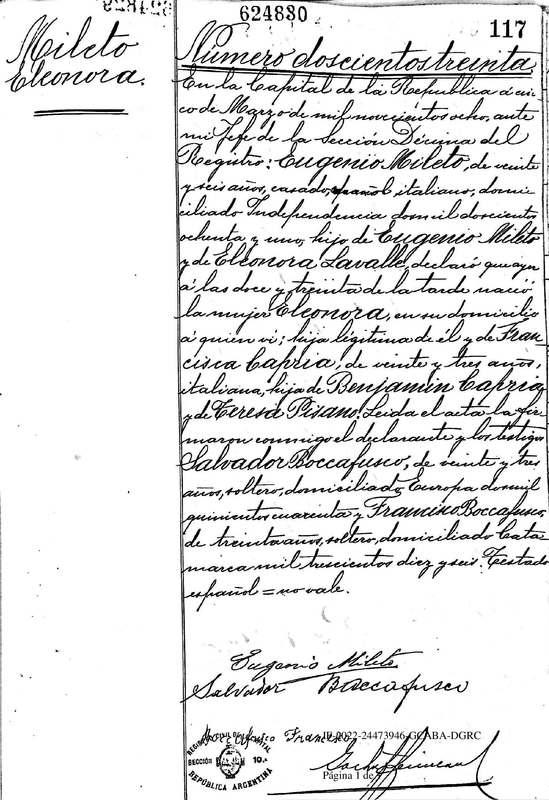 624830
117
Mileto
Eleonora.
Número doscientos treinta
En la Capital de la Republica á cin
co de Marzo de mil novecientos ocho, ante
mi Jefe de la Sección Décima del
Registro: Eugenio Mileto, de veinte
y seis años, casado, español, italiano, domi
ciliado Independencia dos mil doscientos
ochenta y uno, hijo de Eugenio Mileto
y de Eleonora Lavalle, declaró que ayer
á las doce y treinta de la tarde nació
la mujer Eleonora, en su domicilio
á quién ví; hija légitima de él y de Fran
cisca Capria, de veinte y tres años,
italiana, hija de Benjamin Capria
y de Teresa Pisano. Leida el acta la fir
maron conmigo el declarante y los testigos
Salvador Boccafusco, de veinte y tres
años, soltero, domiciliado Europa dos mil
quinientos cuarenta y Francisco Boccafusco,
de treinta años, soltero, domiciliado Cata
marca mil trescientos diez y seis. Testado
español = no vale.
Eugenio Mileto
Salvador Boccafusco
Boccafusco Francisco
IF-2022-24473946-GCABA-DGRC
SECCIÓN 10.a
REPÚBLICA ARGENTINA
Página 1 de